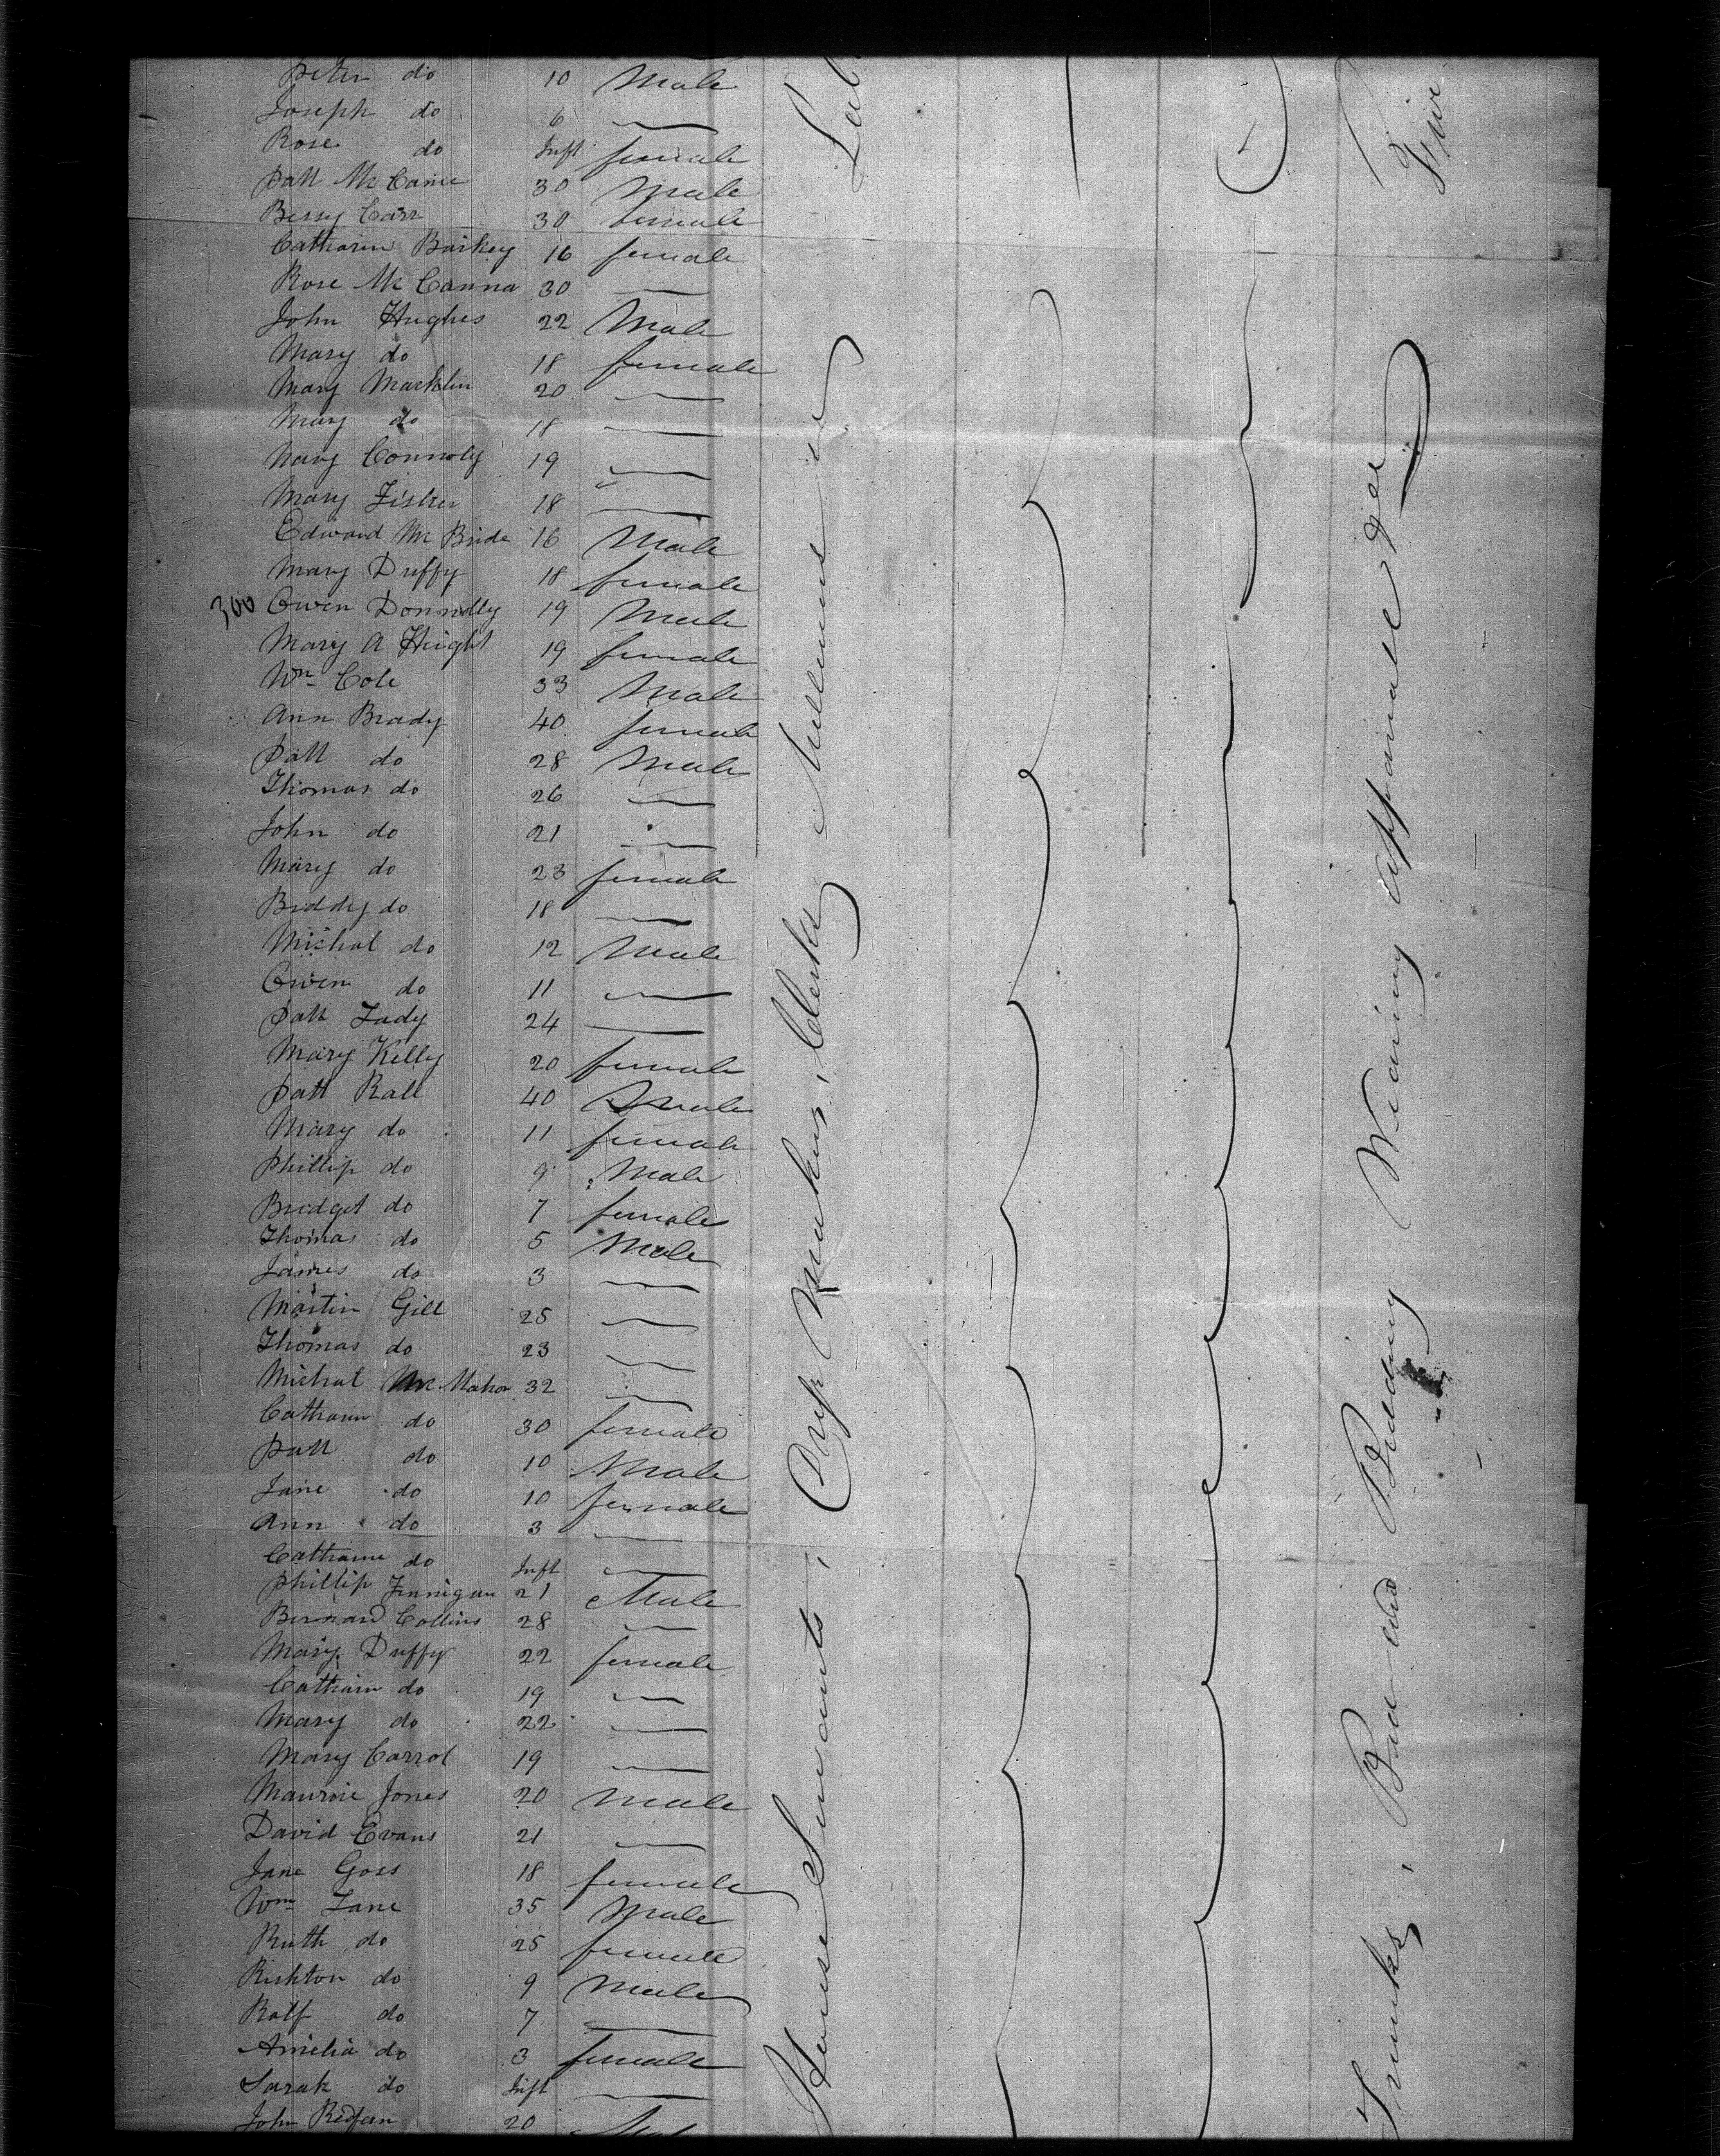 Peter do 10 Male
Joseph do 6 —
Rose do Inft female
Patt Mc Canna 30 Male
Bessy Carr 30 female
Catharin Barkey 16 female
Rose Mc Canna 30 —
John Hughes 22 Male
Mary do 18 female
Mary Marklin 20 —
Mary do 18 —
Mary Connoly 19 —
Mary Fisher 18 —
Edward Mc Bride 16 Male
Mary Duffy 18 female
300 Owen Donnolly 19 Male
Mary A Hight 19 female
Wm Cole 33 Male
Ann Brady 40 female
Patt do 28 Male
Thomas do 26 —
John do 21 —
Mary do 23 female
Biddy do 18 —
Michal do 12 Male
Owen do 11 —
Patt Lady 24 —
Mary Kelly 20 female
Patt Rall 40 Male
Mary do 11 female
Phillip do 9 Male
Bridget do 7 female
Thomas do 5 Male
James do 3 —
Martin Gill 25 —
Thomas do 23 —
Michal Mc Mahon 32 —
Catharin do 30 female
Patt do 10 Male
Jane do 10 female
Ann do 3 —
Catharine do Inft —
Phillip Finnigan 21 Male
Bernard Collins 28 —
Mary Duffy 22 female
Catharin do 19 —
Mary do 22 —
Mary Carrol 19 —
Maurice Jones 20 Male
David Evans 21 —
Jane Goss 18 female
Wm Lane 35 Male
Ruth do 25 female
Rishton do 9 Male
Ralf do 7 —
Amelia do 3 female
Sarah do Inft —
John Redfern 20
House Servants, Cap Makers, Clerks, Milleners &c
Trunks, Bed and Bedding Wearing apparall &c